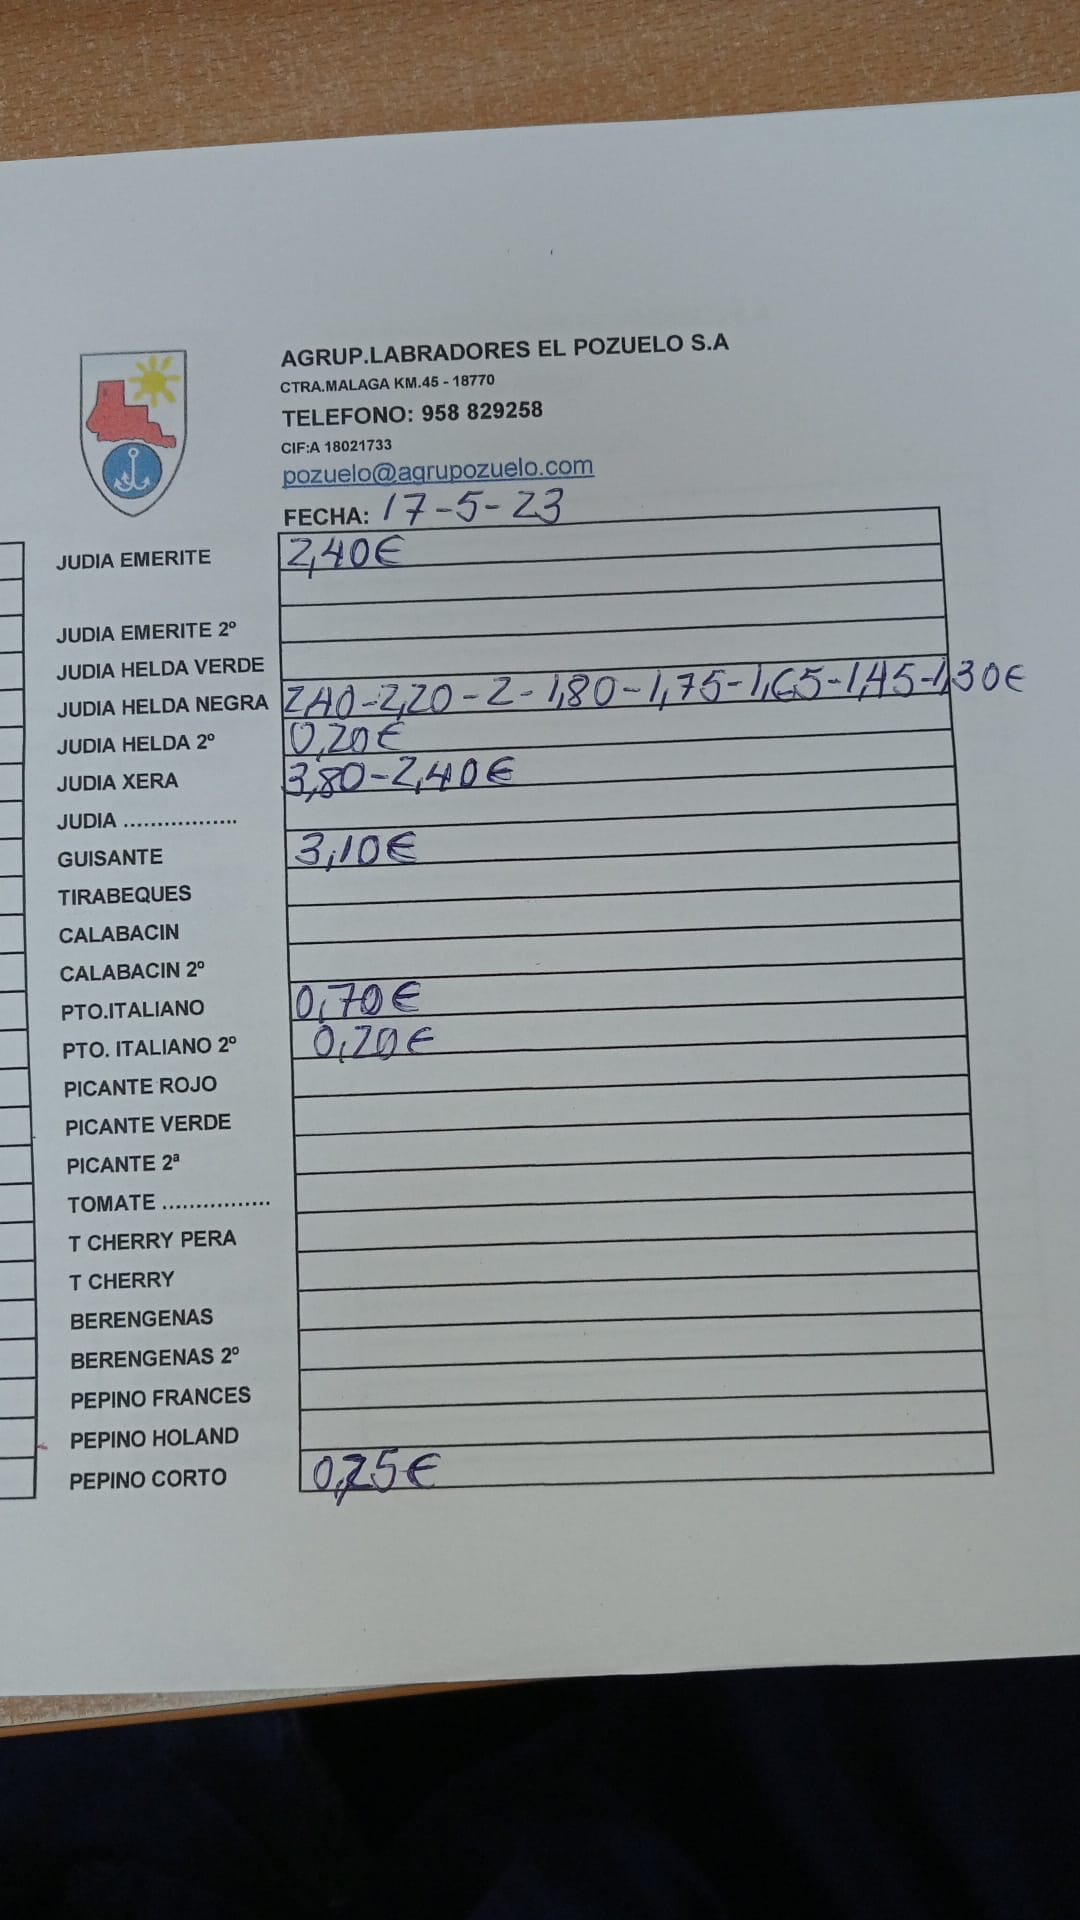 AGRUP.LABRADORES EL POZUELO S.A
CTRA.MALAGA KM.45 - 18770
TELEFONO: 958 829258
CIF:A 18021733
pozuelo@agrupozuelo.com
FECHA: 17-5-23
JUDIA EMERITE 2,40€
JUDIA EMERITE 2º
JUDIA HELDA VERDE
JUDIA HELDA NEGRA 2,40-2,20-2-1,80-1,75-1,65-1,45-1,30€
JUDIA HELDA 2º 0,20€
JUDIA XERA 3,80-2,40€
JUDIA .................
GUISANTE 3,10€
TIRABEQUES
CALABACIN
CALABACIN 2º
PTO.ITALIANO 0,70€
PTO. ITALIANO 2º 0,20€
PICANTE ROJO
PICANTE VERDE
PICANTE 2ª
TOMATE ................
T CHERRY PERA
T CHERRY
BERENGENAS
BERENGENAS 2º
PEPINO FRANCES
PEPINO HOLAND
PEPINO CORTO